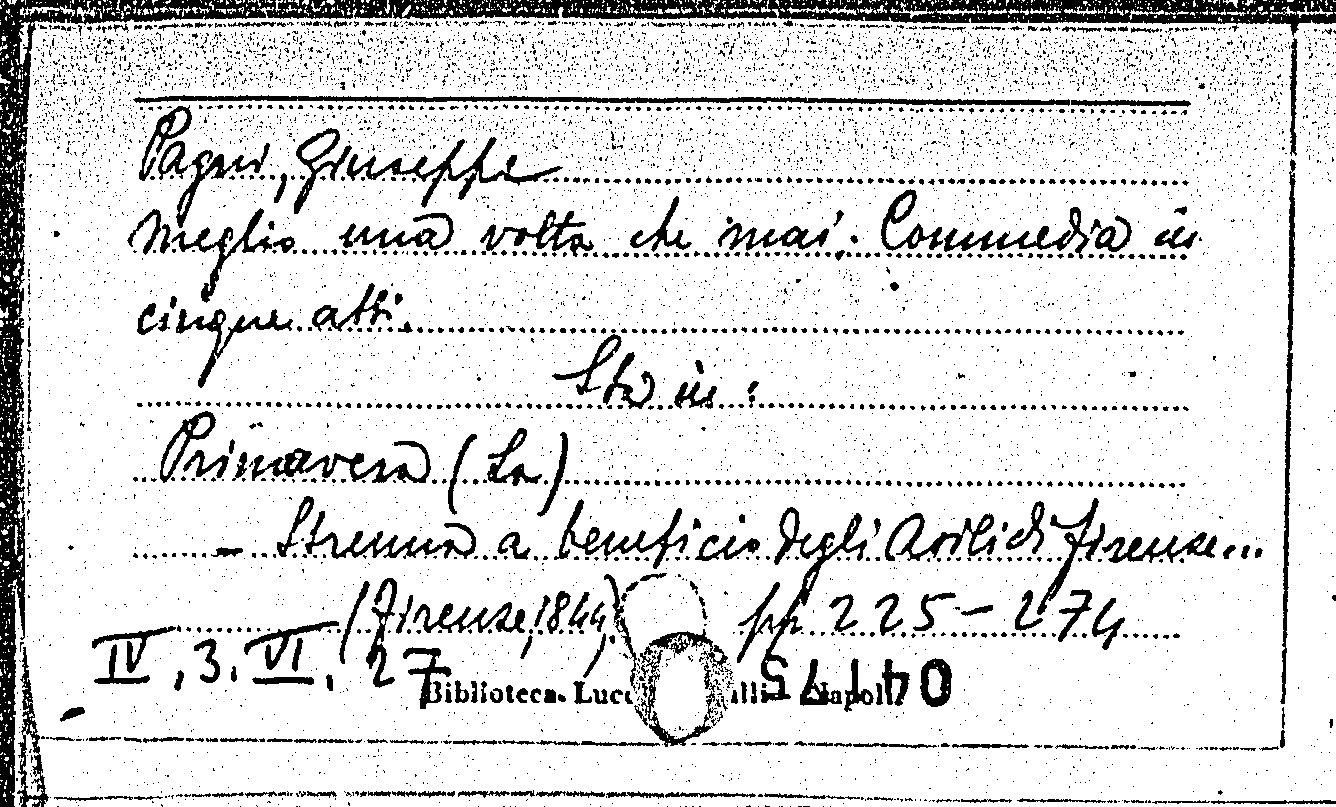 Pagni, Giuseppe
Meglio una volta che mai. Commedia in
cinque atti.
Sta in:
Primavera (La)
- Strenna a beneficio degli Asili di Firenze...
(Firenze, 1844), pp 225-274
IV, 3. VI, 27
Biblioteca Napoli